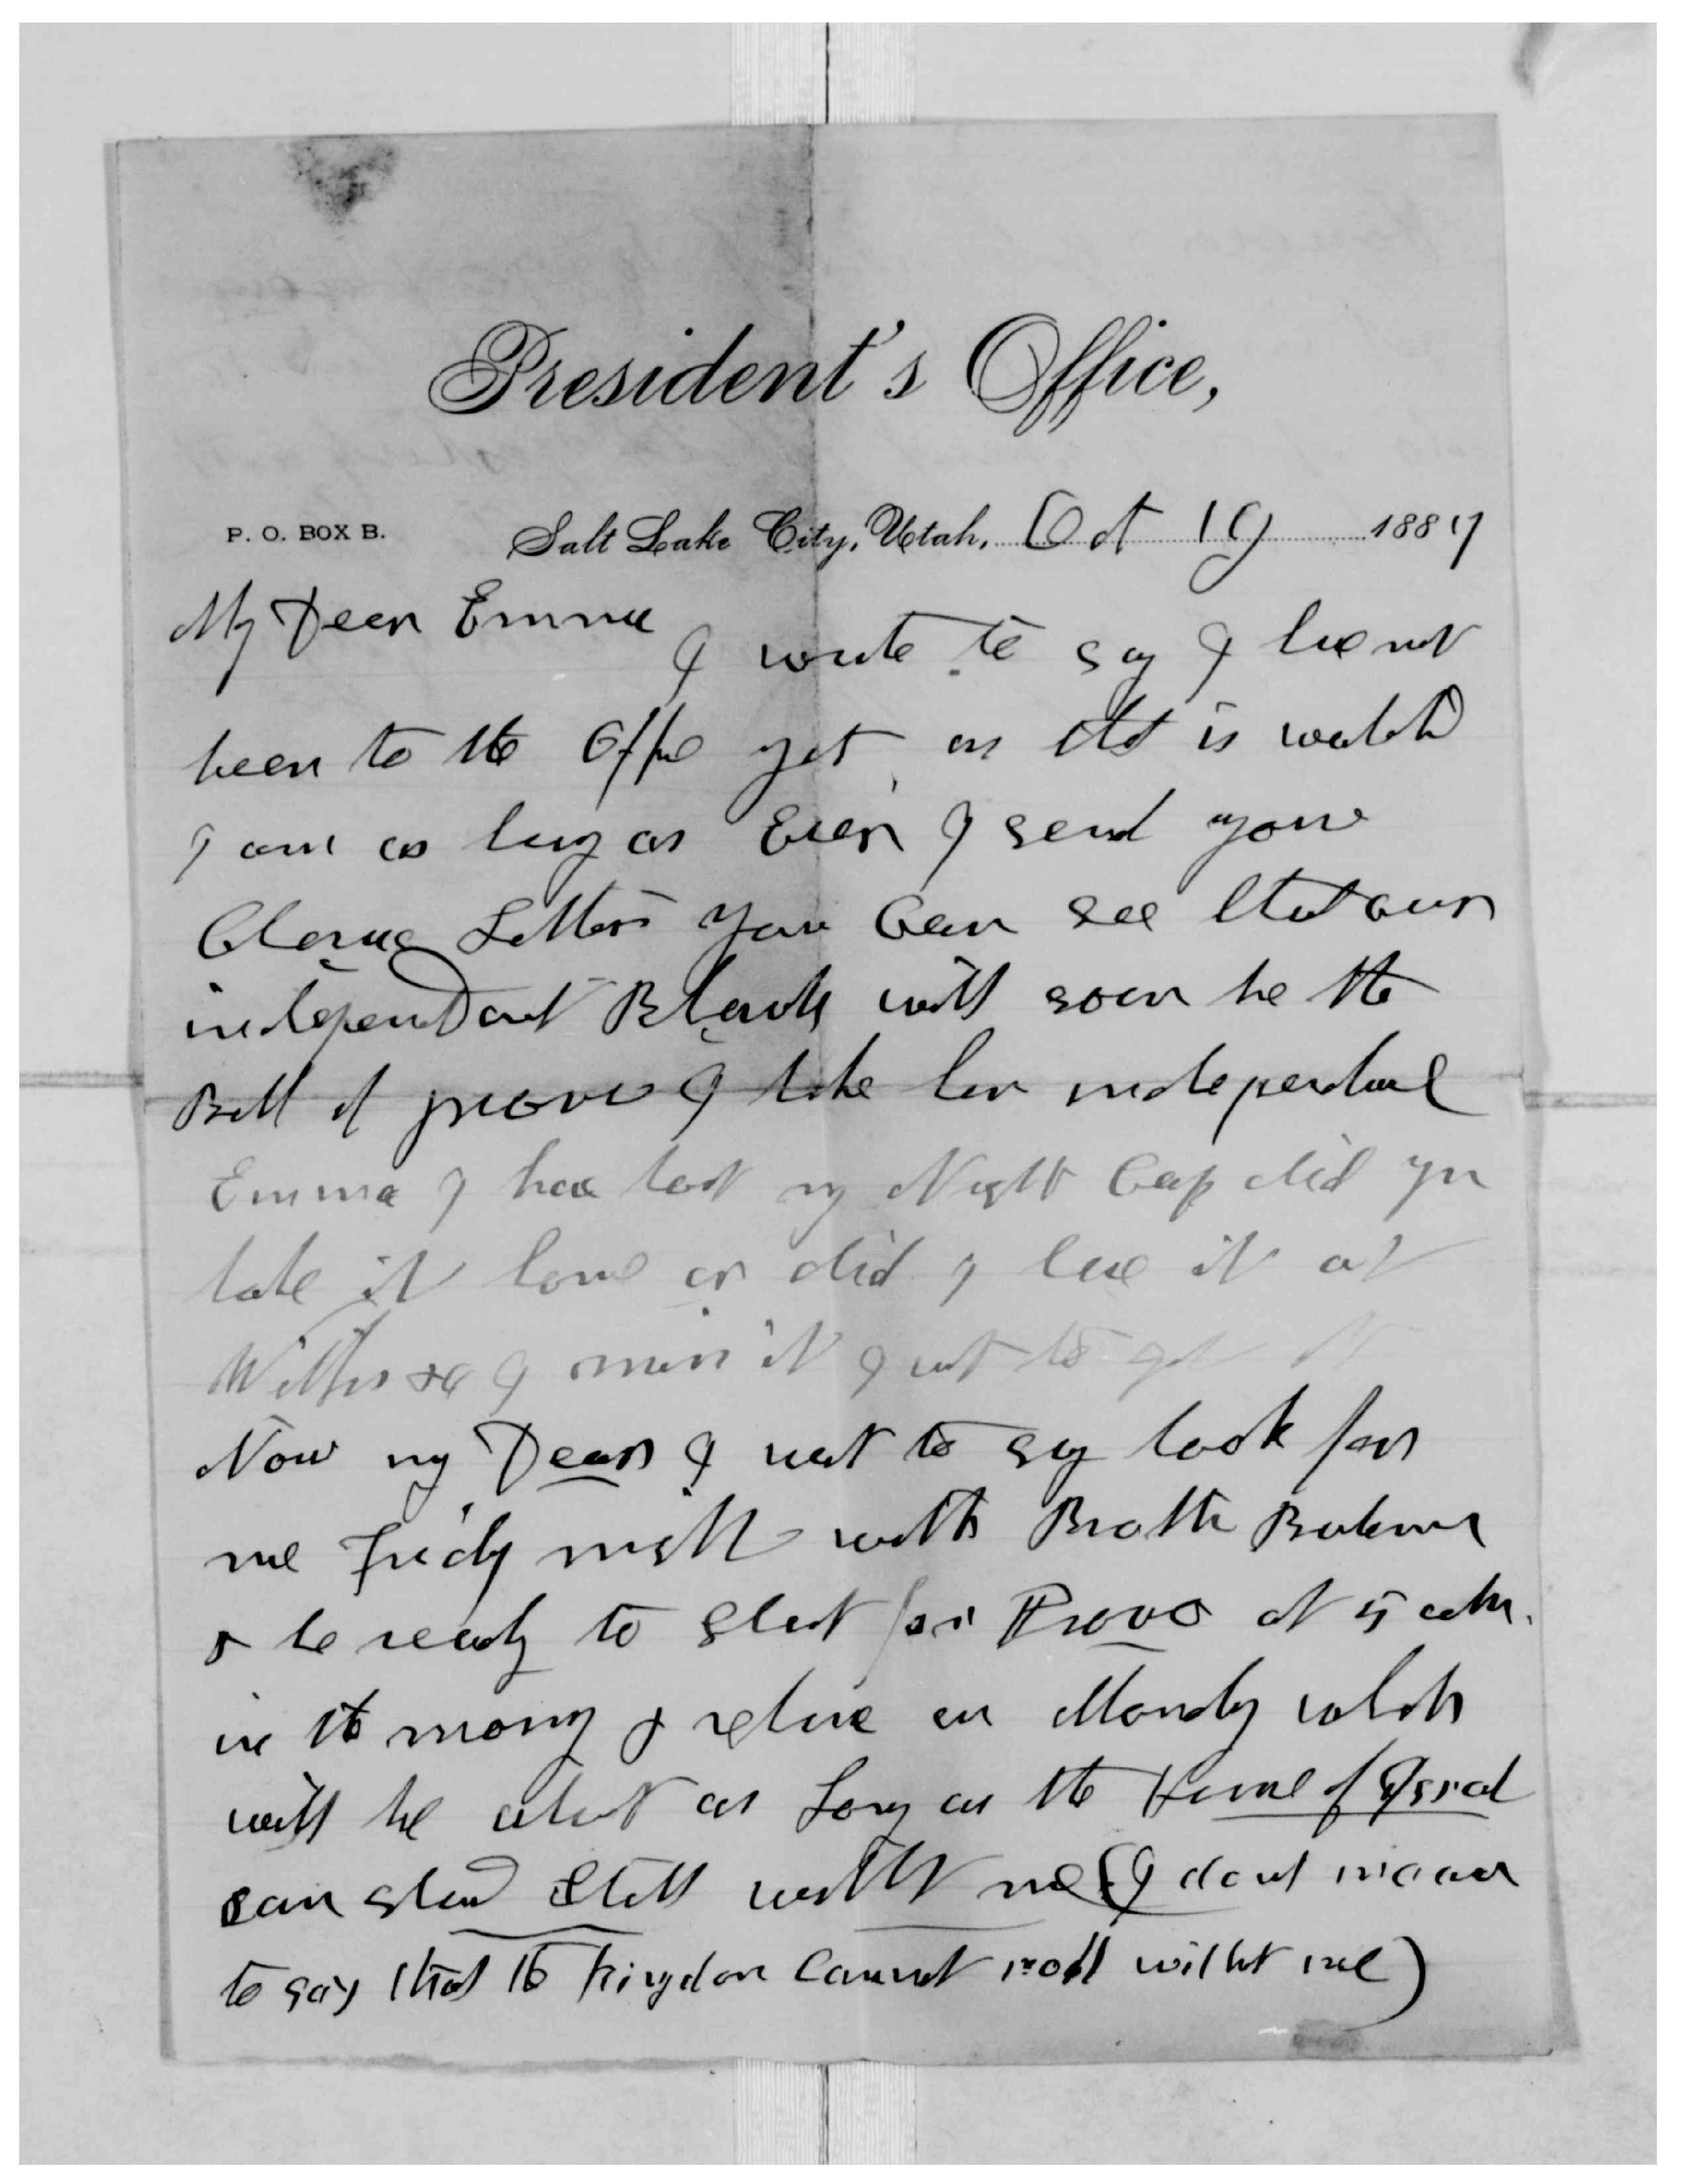 President's Office,
P. O. BOX B. Salt Lake City, Utah, Oct 19 1887
My Dear Emma
I write to say I have not
been to the Office yet as that is watchd
I am as busy as Ever I send you
Letter you Can see that our
independant Blanch will soon be the
Bell of provo I like her independance
Emma I have lost my Night Cap did you
take it home or did I leave it at
I miss it I want to get it
Now my Dear I want to say look for
me Friday night with Brother Bateman
& be ready to start for Provo at 5 oclk.
in the morning & return on Monday which
will be about as Long as the House of Israel
can stand Still with me (I dont mean
to say that the kingdom Cannot roll without me)